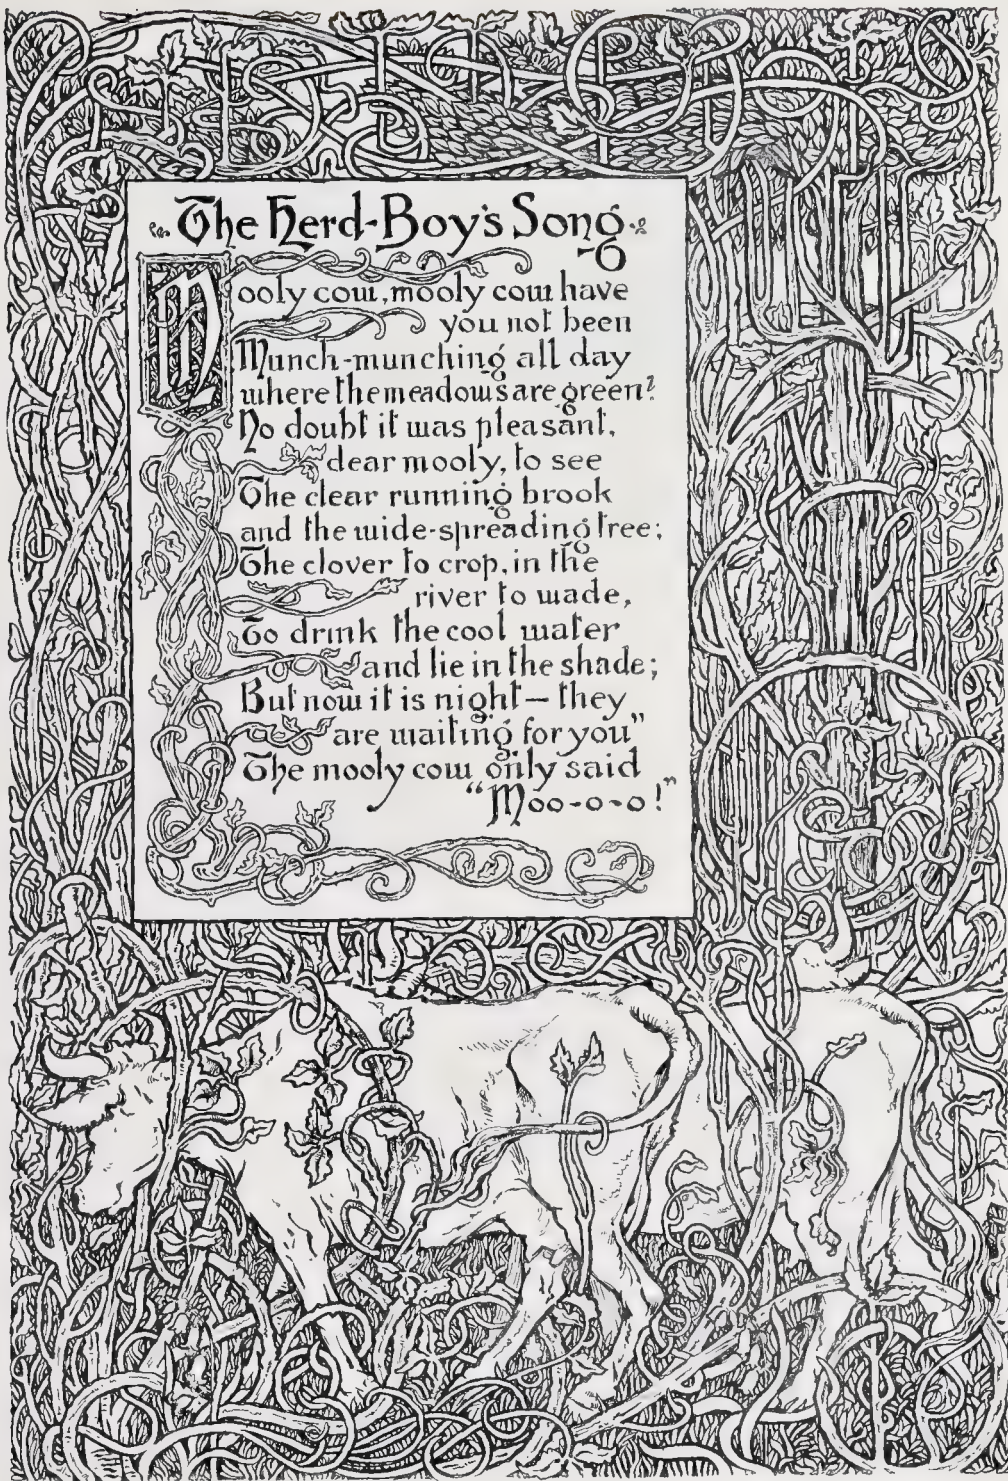 The Herd-Boy's Song
Mooly cow, mooly cow have
you not been
Munch-munching all day
where the meadows are green?
No doubt it was pleasant,
dear mooly, to see
The clear running brook
and the wide-spreading tree;
The clover to crop, in the
river to wade,
To drink the cool water
and lie in the shade;
But now it is night — they
are waiting for you"
The mooly cow only said
"Moo-o-o!"